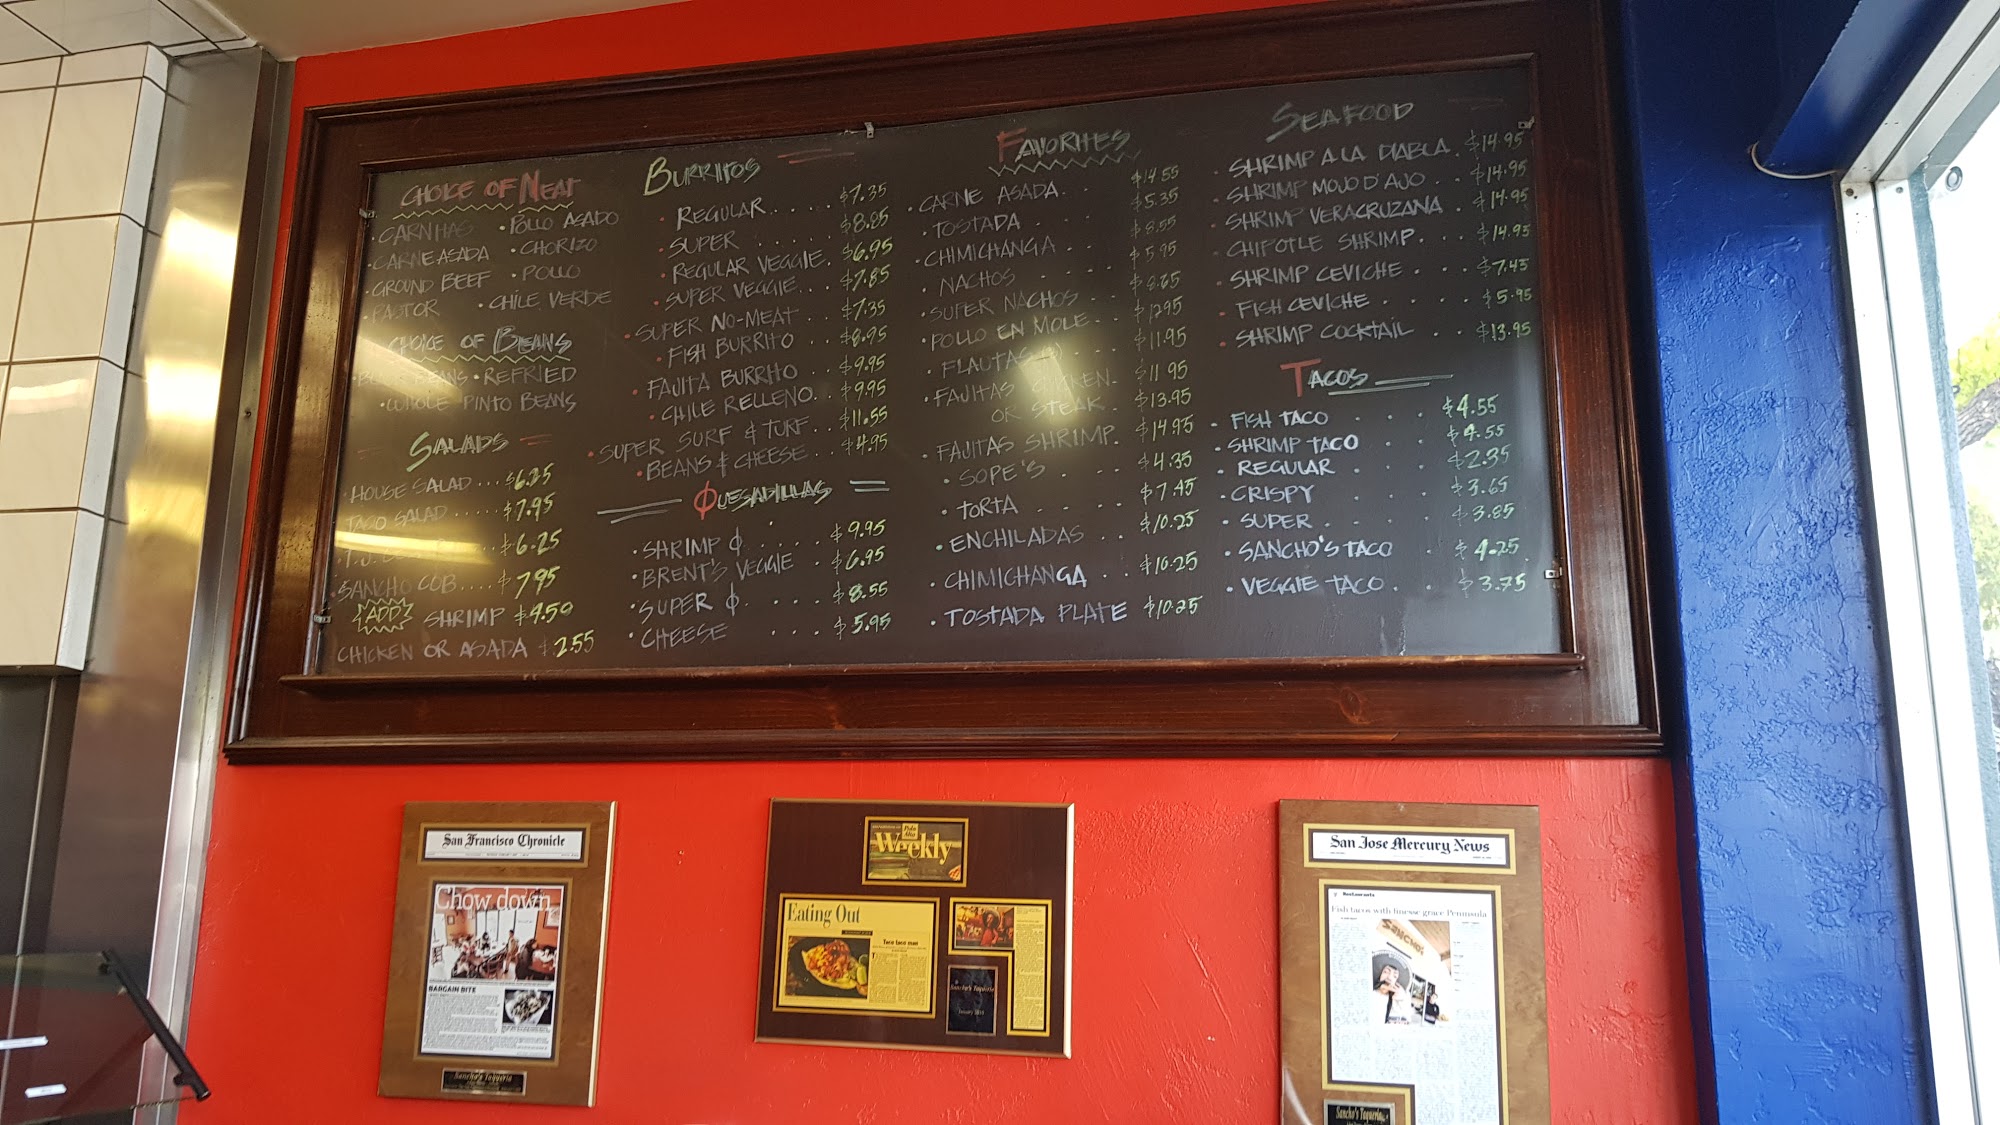 CHOICE OF MEAT
· CARNITAS · POLLO ASADO
· CARNE ASADA · CHORIZO
· GROUND BEEF · POLLO
· PASTOR · CHILE VERDE
CHOICE OF BEANS
BEANS · REFRIED
· WHOLE PINTO BEANS
SALADS
· HOUSE SALAD... $6.25
TACO SALAD..... $7.95
$6.25
SANCHO COB.... $7.95
ADD SHRIMP $4.50
CHICKEN OR ASADA $2.55
BURRITOS
· REGULAR.... $7.35
· SUPER ..... $8.85
· REGULAR VEGGIE. $6.95
· SUPER VEGGIE... $7.85
· SUPER NO-MEAT.. $7.35
· FISH BURRITO .. $8.95
· FAJITA BURRITO .. $9.95
· CHILE RELLENO.. $9.95
· SUPER SURF & TURF.. $11.55
· BEANS & CHEESE... $4.95
QUESADILLAS
· SHRIMP Q..... $9.95
· BRENT'S VEGGIE . $6.95
· SUPER Q. ... $8.55
· CHEESE ... $5.95
FAVORITES
· CARNE ASADA.. $14.55
· TOSTADA .. $5.35
· CHIMICHANGA .. $8.55
· NACHOS .... $5.95
· SUPER NACHOS .. $8.65
· POLLO EN MOLE.. $12.95
· FLAUTAS $11.95
· FAJITAS CHICKEN. $11.95
OR STEAK. $13.95
· FAJITAS SHRIMP. $14.95
· SOPE'S .... $4.35
· TORTA .... $7.45
· ENCHILADAS .. $10.25
· CHIMICHANGA .. $10.25
· TOSTADA PLATE $10.25
SEAFOOD
· SHRIMP A LA DIABLA. $14.95
· SHRIMP MOJO D'AJO .. $14.95
· SHRIMP VERACRUZANA . $14.95
· CHIPOTLE SHRIMP... $14.95
· SHRIMP CEVICHE ... $7.45
· FISH CEVICHE .... $5.95
· SHRIMP COCKTAIL .. $13.95
TACOS
· FISH TACO ... $4.55
· SHRIMP TACO .. $4.55
· REGULAR ... $2.35
· CRISPY .... $3.65
· SUPER..... $3.85
· SANCHO'S TACO . $4.25
· VEGGIE TACO.. $3.75
San Francisco Chronicle
Chow down
BARGAIN BITE
Sancho's Taqueria
Palo Alto
Weekly
Eating Out
Taco taco man
Sancho's Taqueria
January 2010
San Jose Mercury News
Restaurants
Fish tacos with finesse grace Peninsula
SANCHO'S
Sancho's Taqueria